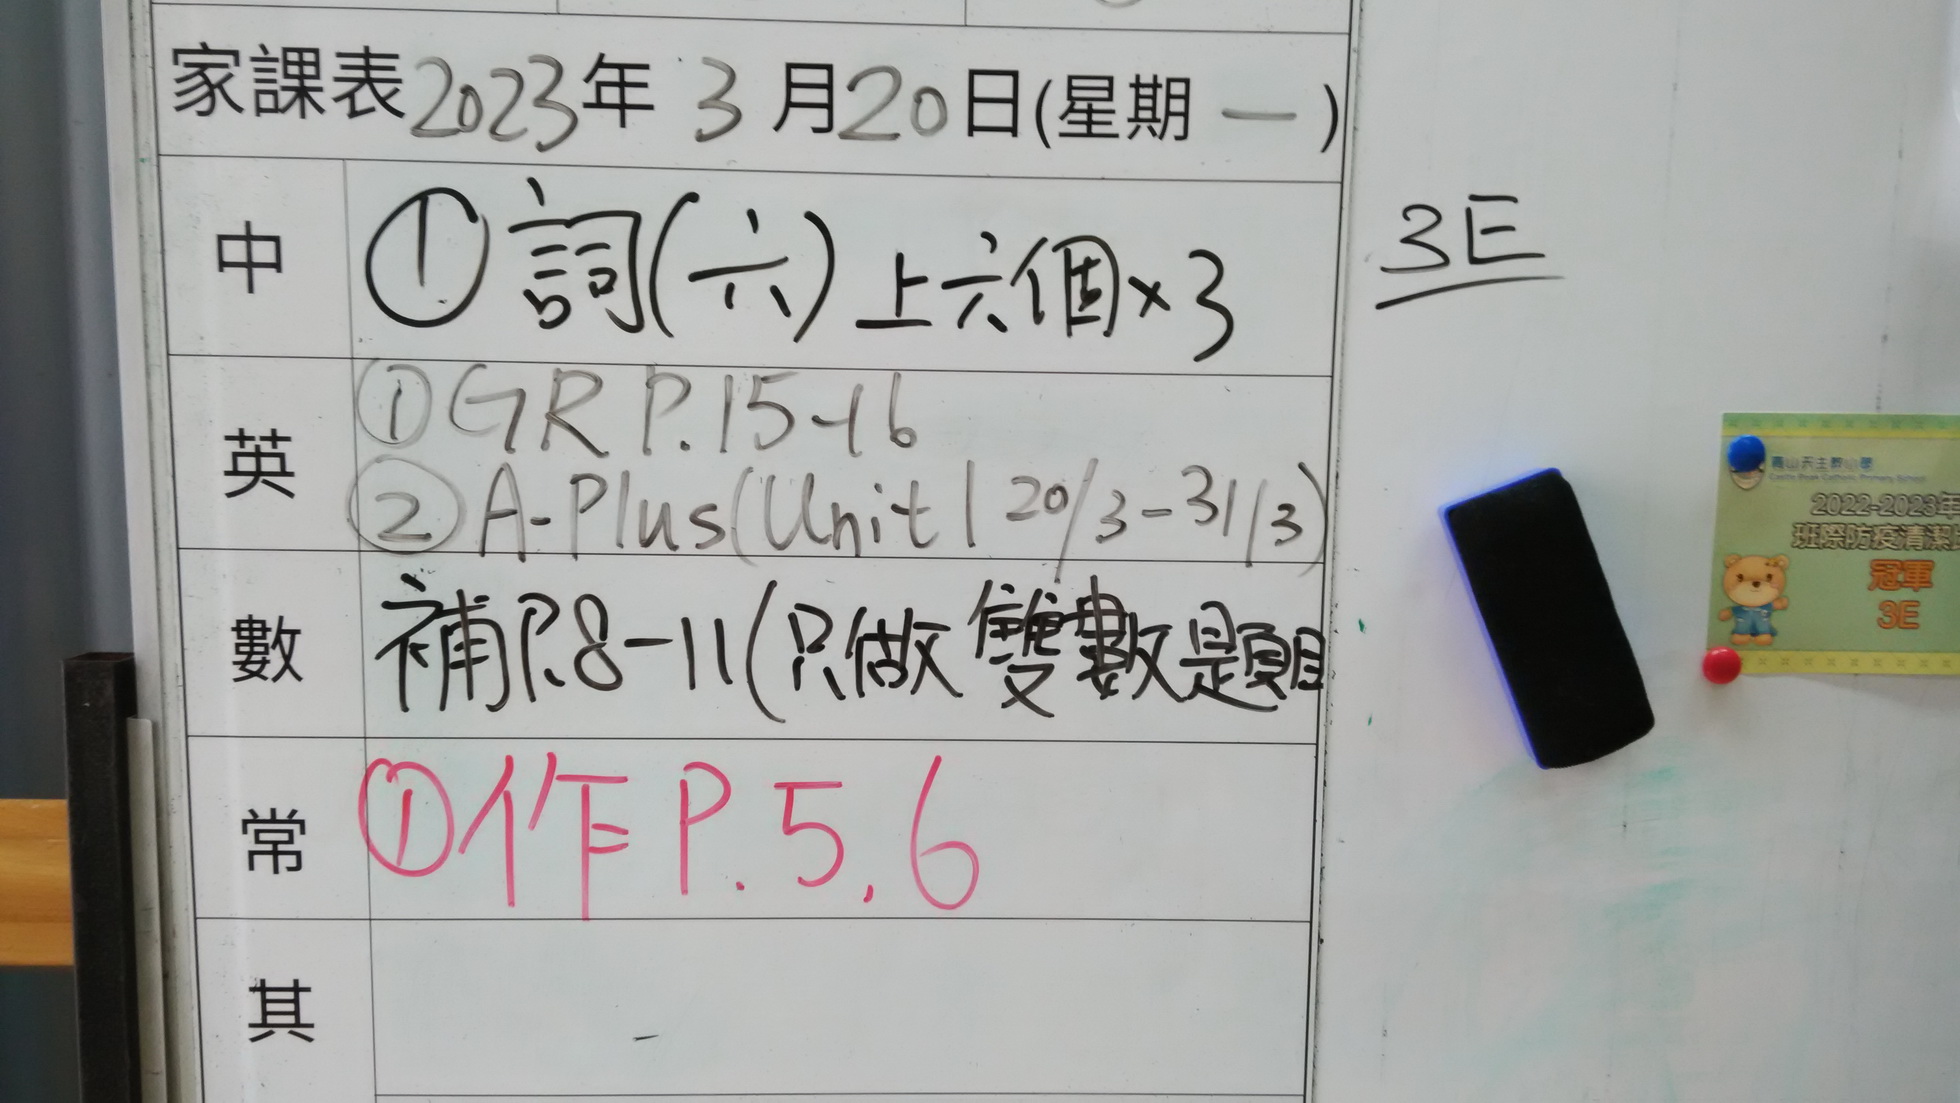 家課表2023年3月20日(星期一)
中 ①詞(六)上六個×3
英 ①GR P.15-16
②A-Plus(Unit 1 20/3-31/3)
數 補P.8-11(只做雙數題目
常 ①作P.5,6
其
3E
高山天主教小學
Castle Peak Catholic Primary School
2022-2023年
班際防疫清潔
冠軍
3E